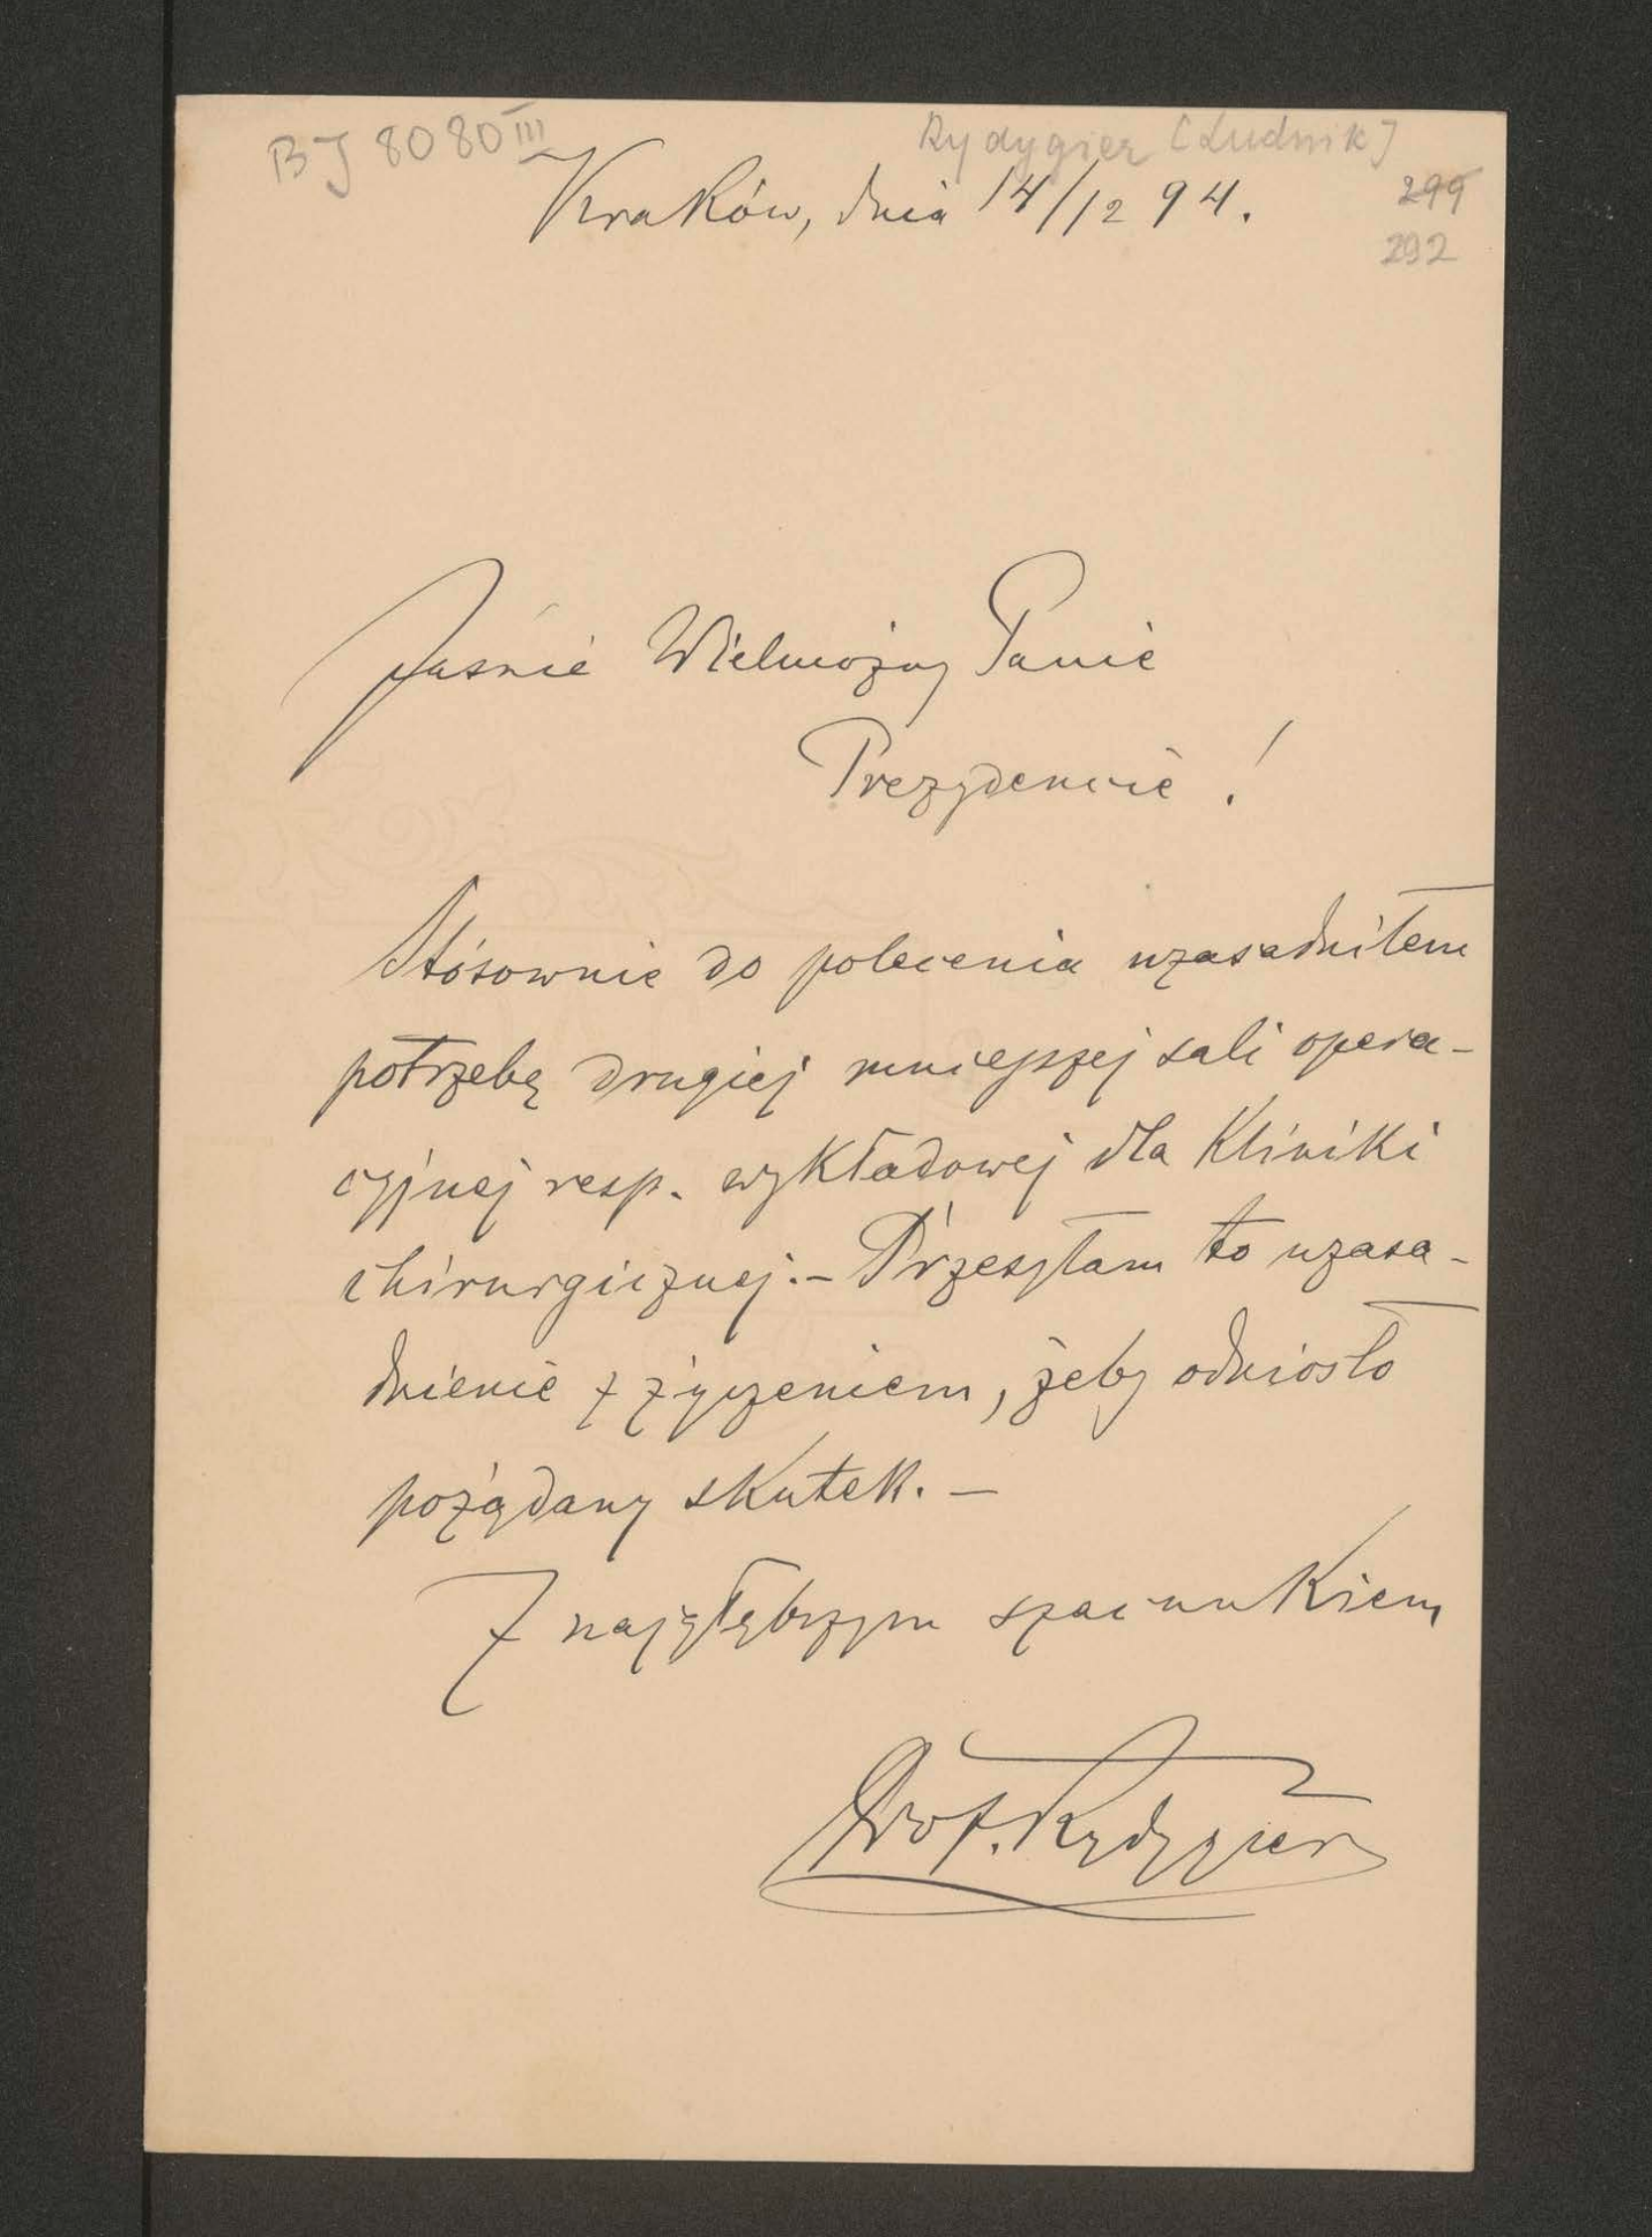 BJ 8080 III
Rydygier [Ludwik]
299
292
Kraków, dnia 14/12 94.
Jaśnie Wielmożny Panie
Prezydencie!
Stósownie do polecenia uzasadniłem
potrzebę drugiej mniejszej sali opera-
cyjnej resp. wykładowej dla Kliniki
chirurgicznej. – Przesyłam to uzasa-
dnienie z życzeniem, żeby odniosło
pożądany skutek. –
Z najgłębszym szacunkiem
Prof. Rydygier